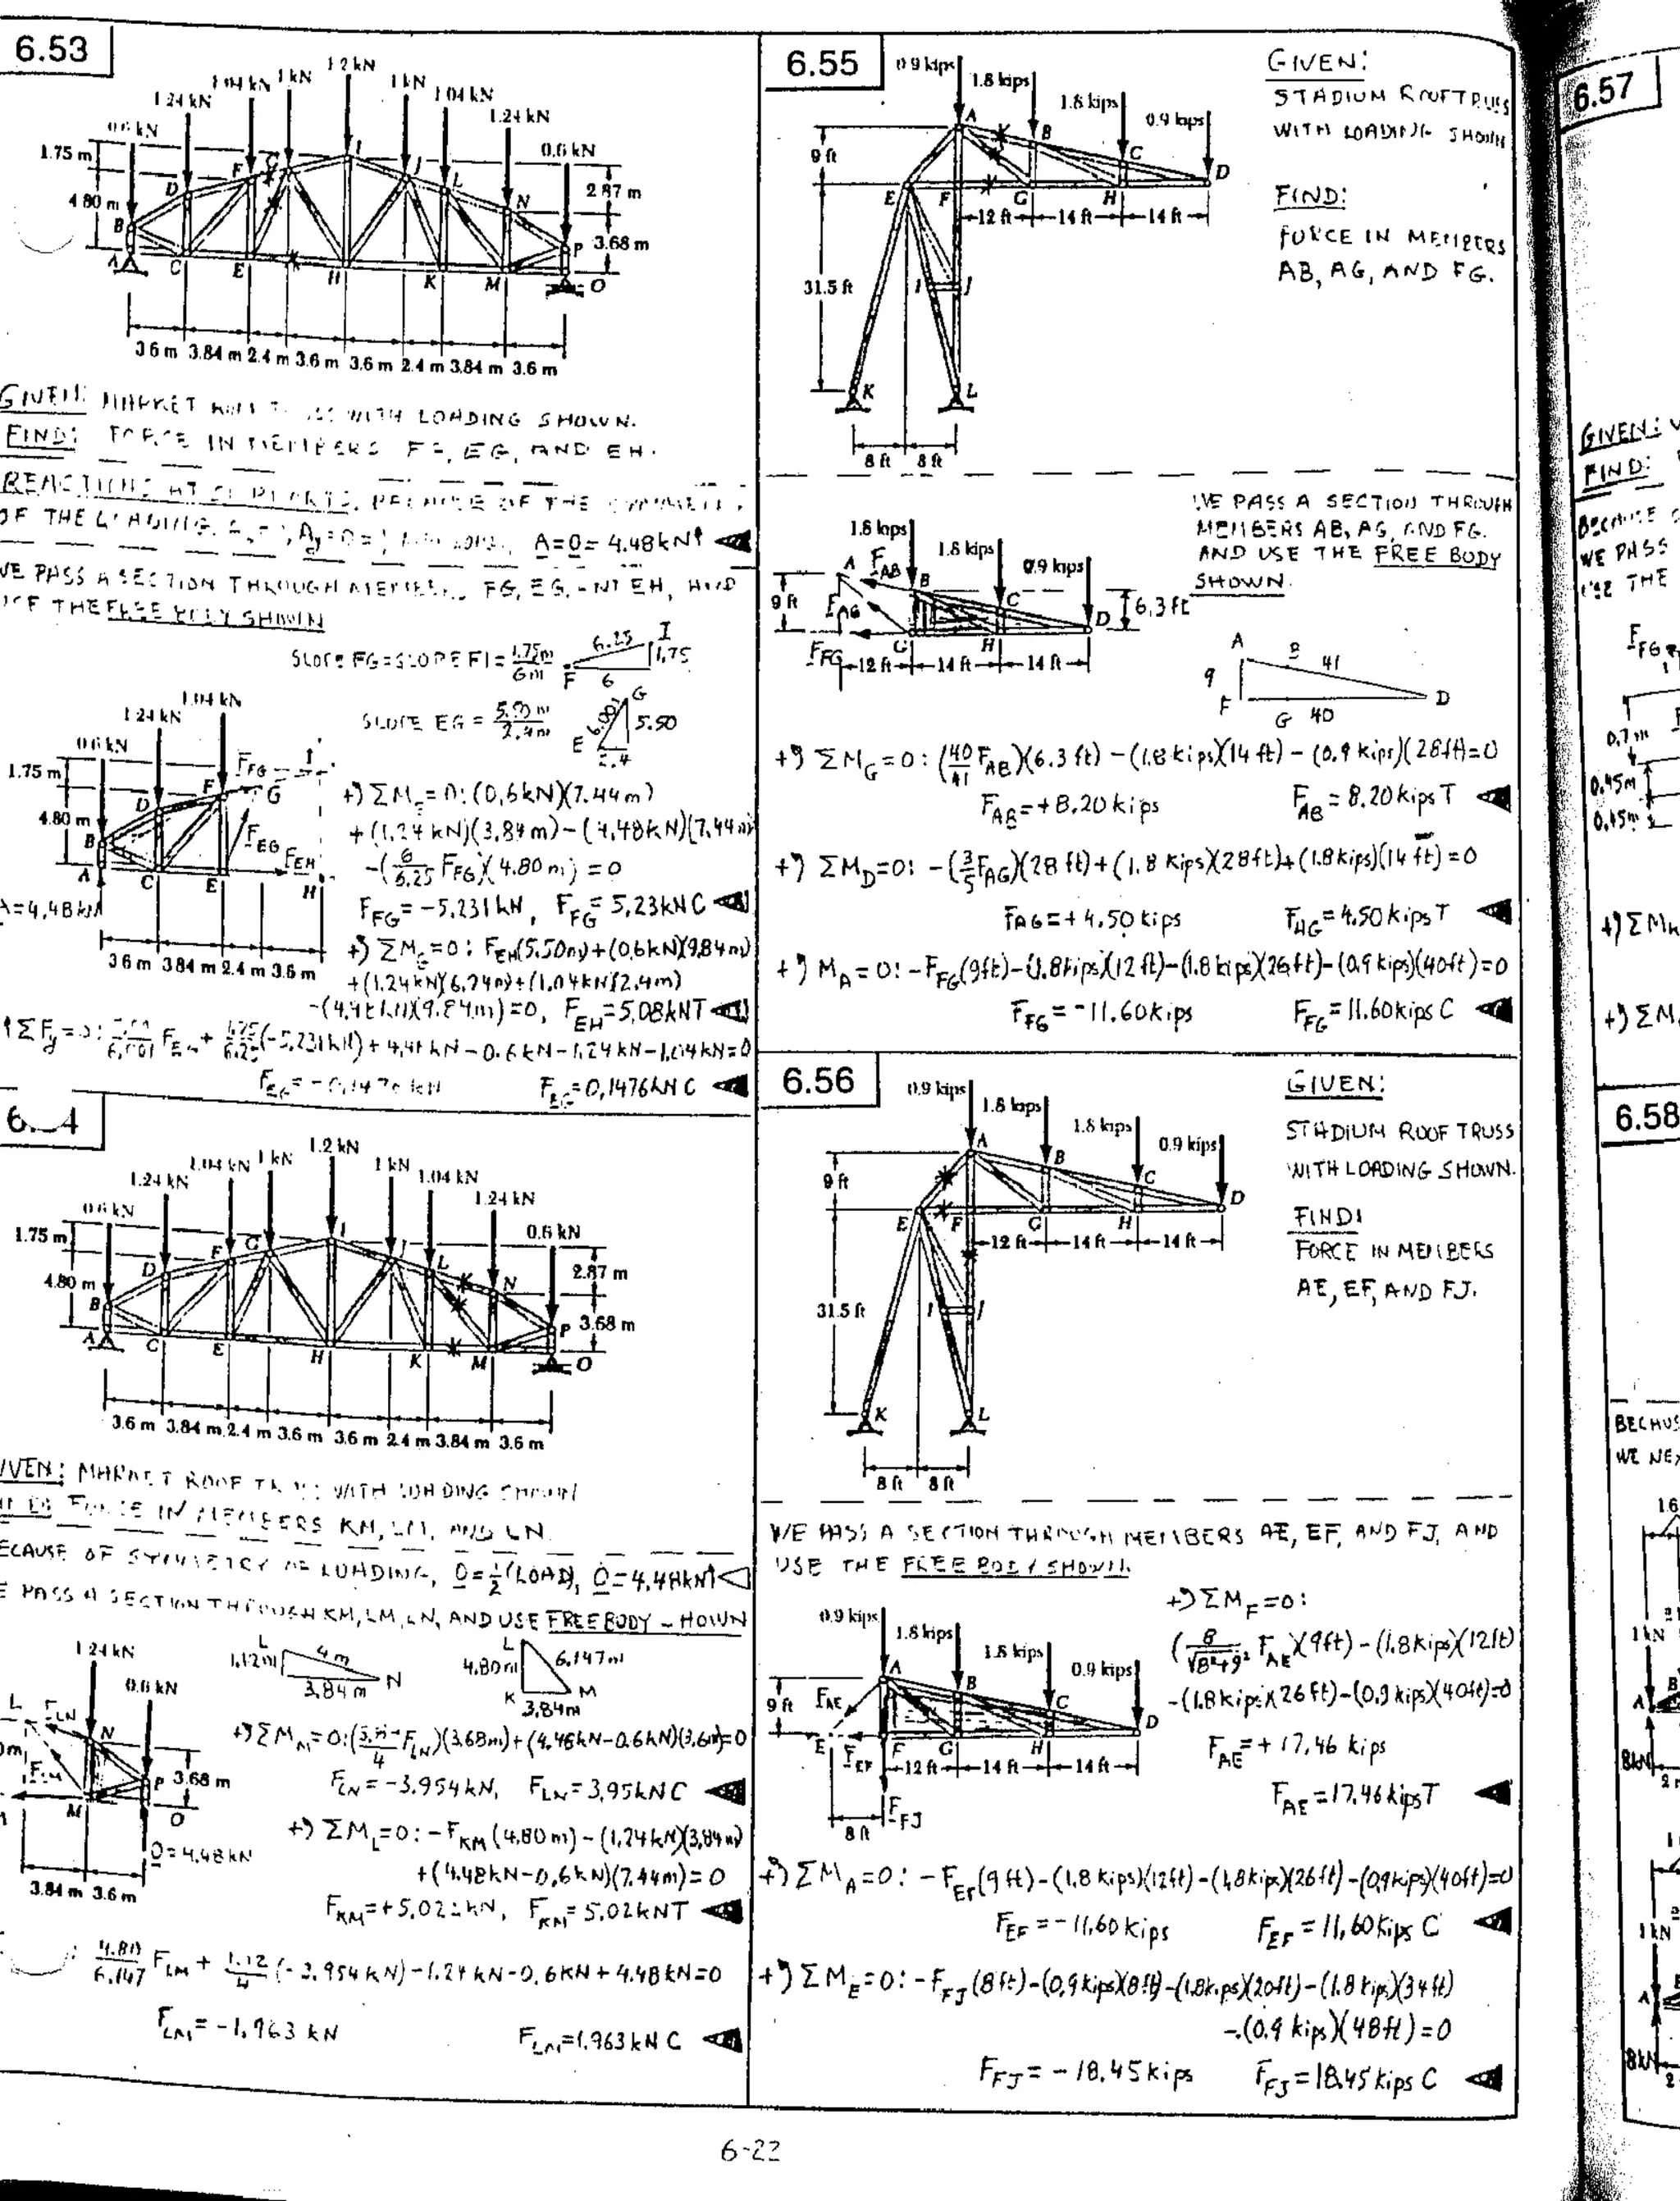 6.53
1.2 kN
1.04 kN
1 kN
1 kN
1.04 kN
1.24 kN
1.24 kN
0.6 kN
0.6 kN
1.75 m
4.80 m
2.87 m
3.68 m
A B C D E F G H I J K L M N O P
3.6 m 3.84 m 2.4 m 3.6 m 3.6 m 2.4 m 3.84 m 3.6 m
GIVEN: MARKET WITH LOADING SHOWN.
FIND: FORCE IN MEMBERS EG, AND EH.
REACTIONS AT OF THE
OF THE LOADING. A = O = 4.48 kN↑
WE PASS A SECTION THROUGH MEMBERS FG, EG, EH, AND
USE THE FREE BODY SHOWN
SLOPE FG = SLOPE FI = 1.75m/6m 6.25 I 1.75 F 6
SLOPE EG = 5.50 m/2.4m 6.001 G 5.50 E 2.4
1.04 kN
1.24 kN
0.6 kN
1.75 m
4.80 m
F_FG
F_EG
F_EH
A=4.48 kN
3.6 m 3.84 m 2.4 m 3.6 m
+) ΣM_E = 0: (0.6kN)(7.44m)
+(1.24 kN)(3.84m)-(4.48kN)(7.44m)
-(6/6.25 F_FG)(4.80m) = 0
F_FG = -5.231 kN, F_FG = 5.23kN C
+) ΣM_G = 0: F_EH(5.50m)+(0.6kN)(9.84m)
+(1.24kN)(6.24m)+(1.04kN)(2.4m)
-(4.48kN)(9.84m)=0, F_EH = 5.08kN T
↑ΣF_y = 0: 5.50/6.001 F_EG + 1.75/6.25(-5.231kN)+4.48kN-0.6kN-1.24kN-1.04kN=0
F_EG = -0.1476 kN F_EG = 0.1476kN C
1.2 kN
1.04 kN
1 kN
1 kN
1.04 kN
1.24 kN
1.24 kN
0.6 kN
0.6 kN
1.75 m
4.80 m
2.87 m
3.68 m
A B C D E F G H I J K L M N O P
3.6 m 3.84 m 2.4 m 3.6 m 3.6 m 2.4 m 3.84 m 3.6 m
IVEN: MARKET ROOF WITH LOADING
FORCE IN MEMBERS KM, LM, AND LN
ECAUSE OF SYMMETRY OF LOADING, O = 1/2(LOAD), O = 4.48kN↑
E PASS A SECTION THROUGH KM, LM, LN, AND USE FREE BODY HOWN
1.24 kN
0.6 kN
1.12m L 4m N 3.84 m
4.80m L 6.147m K 3.84m M
F_LN
F_LM
3.68 m
O = 4.48 kN
3.84 m 3.6 m
+) ΣM_M = 0: (3.84/4 F_LN)(3.68m)+(4.48kN-0.6kN)(3.6m)=0
F_LN = -3.954kN, F_LN = 3.95kN C
+) ΣM_L = 0: -F_KM(4.80m)-(1.24kN)(3.84m)
+(4.48kN-0.6kN)(7.44m)=0
F_KM = +5.022kN, F_KM = 5.02kN T
4.80/6.147 F_LM + 1.12/4 (-3.954kN)-1.24kN-0.6kN+4.48kN=0
F_LM = -1.963 kN F_LM = 1.963kN C
6.55
0.9 kips
1.8 kips
1.8 kips
0.9 kips
9 ft
31.5 ft
A B C D E F G H I J K L
12 ft 14 ft 14 ft
8 ft 8 ft
GIVEN:
STADIUM ROOF TRUSS
WITH LOADING SHOWN
FIND:
FORCE IN MEMBERS
AB, AG, AND FG.
WE PASS A SECTION THROUGH
MEMBERS AB, AG, AND FG.
AND USE THE FREE BODY
SHOWN.
1.8 kips
1.8 kips
0.9 kips
9 ft
6.3 ft
A B C D G H
F_AB
F_AG
F_FG
12 ft 14 ft 14 ft
A B 41 D 9 F G 40
+) ΣM_G = 0: (40/41 F_AB)(6.3 ft)-(1.8 kips)(14 ft)-(0.9 kips)(28ft)=0
F_AB = +8.20 kips F_AB = 8.20 kips T
+) ΣM_D = 0: -(3/5 F_AG)(28 ft)+(1.8 kips)(28ft)+(1.8kips)(14 ft)=0
F_AG = +4.50 kips F_AG = 4.50 kips T
+) M_A = 0: -F_FG(9ft)-(1.8kips)(12 ft)-(1.8 kips)(26ft)-(0.9 kips)(40ft)=0
F_FG = -11.60 kips F_FG = 11.60 kips C
6.56
0.9 kips
1.8 kips
1.8 kips
0.9 kips
9 ft
31.5 ft
A B C D E F G H I J K L
12 ft 14 ft 14 ft
8 ft 8 ft
GIVEN:
STADIUM ROOF TRUSS
WITH LOADING SHOWN.
FIND:
FORCE IN MEMBERS
AE, EF, AND FJ.
WE PASS A SECTION THROUGH MEMBERS AE, EF, AND FJ, AND
USE THE FREE BODY SHOWN.
0.9 kips
1.8 kips
1.8 kips
0.9 kips
9 ft
F_AE
F_EF
F_FJ
A B C D E F G H
12 ft 14 ft 14 ft
8 ft
+) ΣM_F = 0:
(8/√8²+9² F_AE)(9ft)-(1.8kips)(12ft)
-(1.8kips)(26ft)-(0.9 kips)(40ft)=0
F_AE = +17.46 kips
F_AE = 17.46 kips T
+) ΣM_A = 0: -F_EF(9 ft)-(1.8 kips)(12ft)-(1.8kips)(26ft)-(0.9kips)(40ft)=0
F_EF = -11.60 kips F_EF = 11.60 kips C
+) ΣM_E = 0: -F_FJ(8 ft)-(0.9kips)(8ft)-(1.8kips)(20ft)-(1.8 kips)(34ft)
-(0.9 kips)(48ft)=0
F_FJ = -18.45 kips F_FJ = 18.45 kips C
6-22
6.57
GIVEN:
FIND:
WE PASS
THE
0.7m
0.45m
0.45m
6.58
WE
1 kN
1 kN